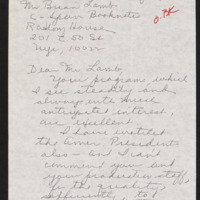 Mr Brian Lamb
C-Span Booknotes
Random House
201 E 50 St
NYC, 10022
O.K
Dear Mr Lamb
Your program which
I see steadily and
always with
anticipated interest,
are excellent.
I have
the Amer. Presidents
also - and I can't
commend you and
your production staff
for the quality,